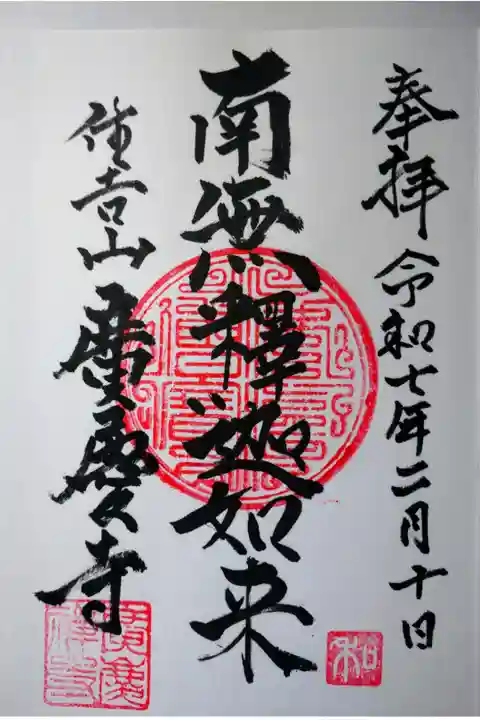 奉拝 令和七年二月十日
南無釋迦如来
住吉山 廣慶寺